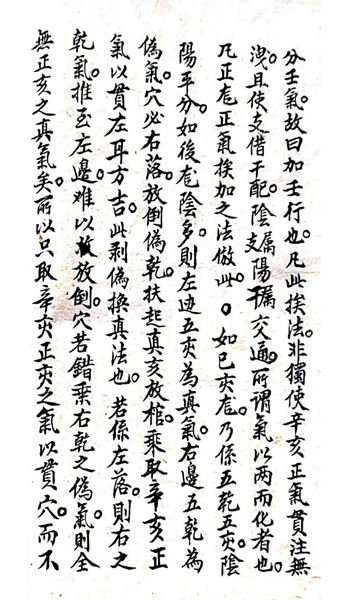 分壬氣。故曰加壬行也。凡此挨法。非獨使辛亥正氣貫注無
洩。且使支借干配。陰支屬陽干屬交通。所謂氣以两而化者也。
凡正龙正氣挨加之法倣此。○如巳亥龙。乃係五乾五亥。陰
陽平分。如後龙陰多。則左边五亥為真氣。右邊五乾為
偽氣。穴必右落。放倒偽乾。扶起真亥放棺。乘取辛亥正
氣以貫左耳方吉。此剥偽換真法也。若係左落。則右之
乾氣推至左邊。难以放倒。穴若錯乘右乾之偽氣。則全
無正亥之真氣矣。所以只取辛亥正亥之氣以貫穴。而不